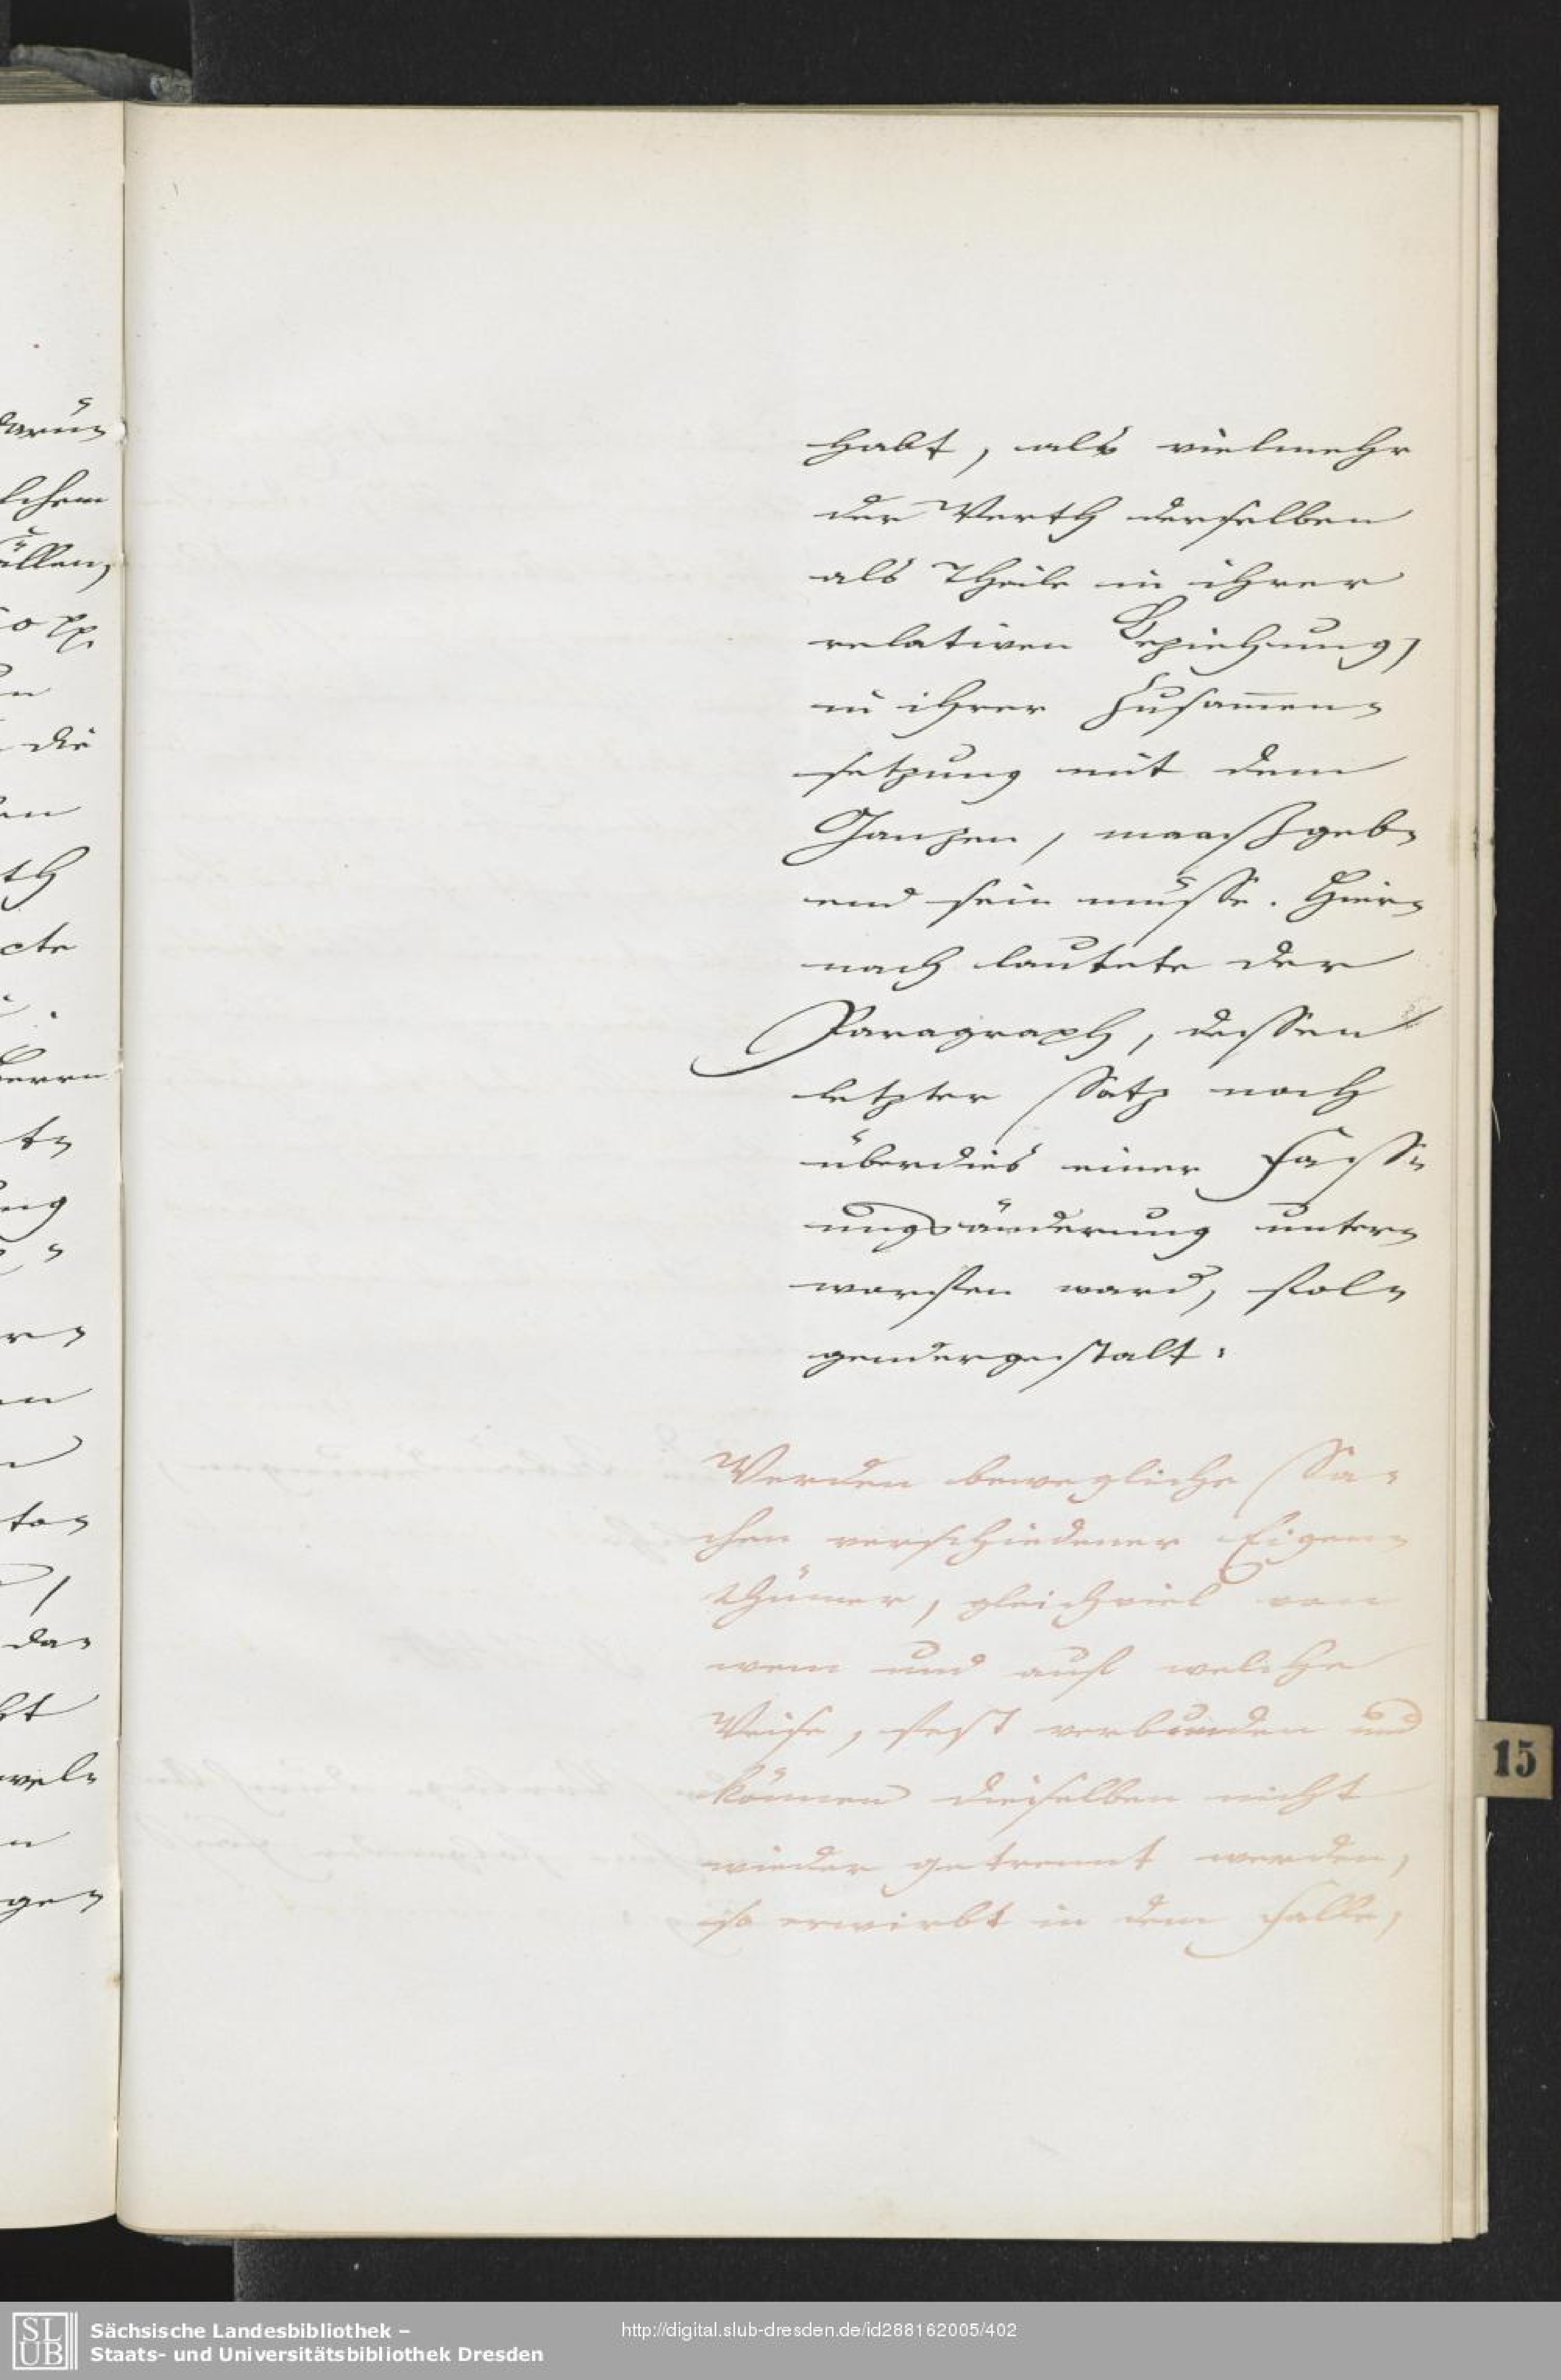 habt, als vielmehr
der Werth derselben
als Theile in ihrer
relativen Beziehung,
in ihrer Zusam̅en-
setzung mit dem
Ganzen, maaßgeb-
end sein müsse. Hier-
nach lautete der
Paragraph, dessen
letzter Satz noch
überdies einer Fass-
ungsänderung unter-
worfen ward, fol-
gendergestalt:
Werden bewegliche Sa-
chen verschiedener Eigen-
thümer, gleichviel von
wem und auf welche
Weise, fest verbunden und
können dieselben nicht
wieder getrennt werden,
so erwirbt in dem Falle,
darün-
lchem
ällen,
die
th
cte
Herrn
ung
da-
wel-
gen
15
SLUB
Sächsische Landesbibliothek –
Staats- und Universitätsbibliothek Dresden
http://digital.slub-dresden.de/id288162005/402